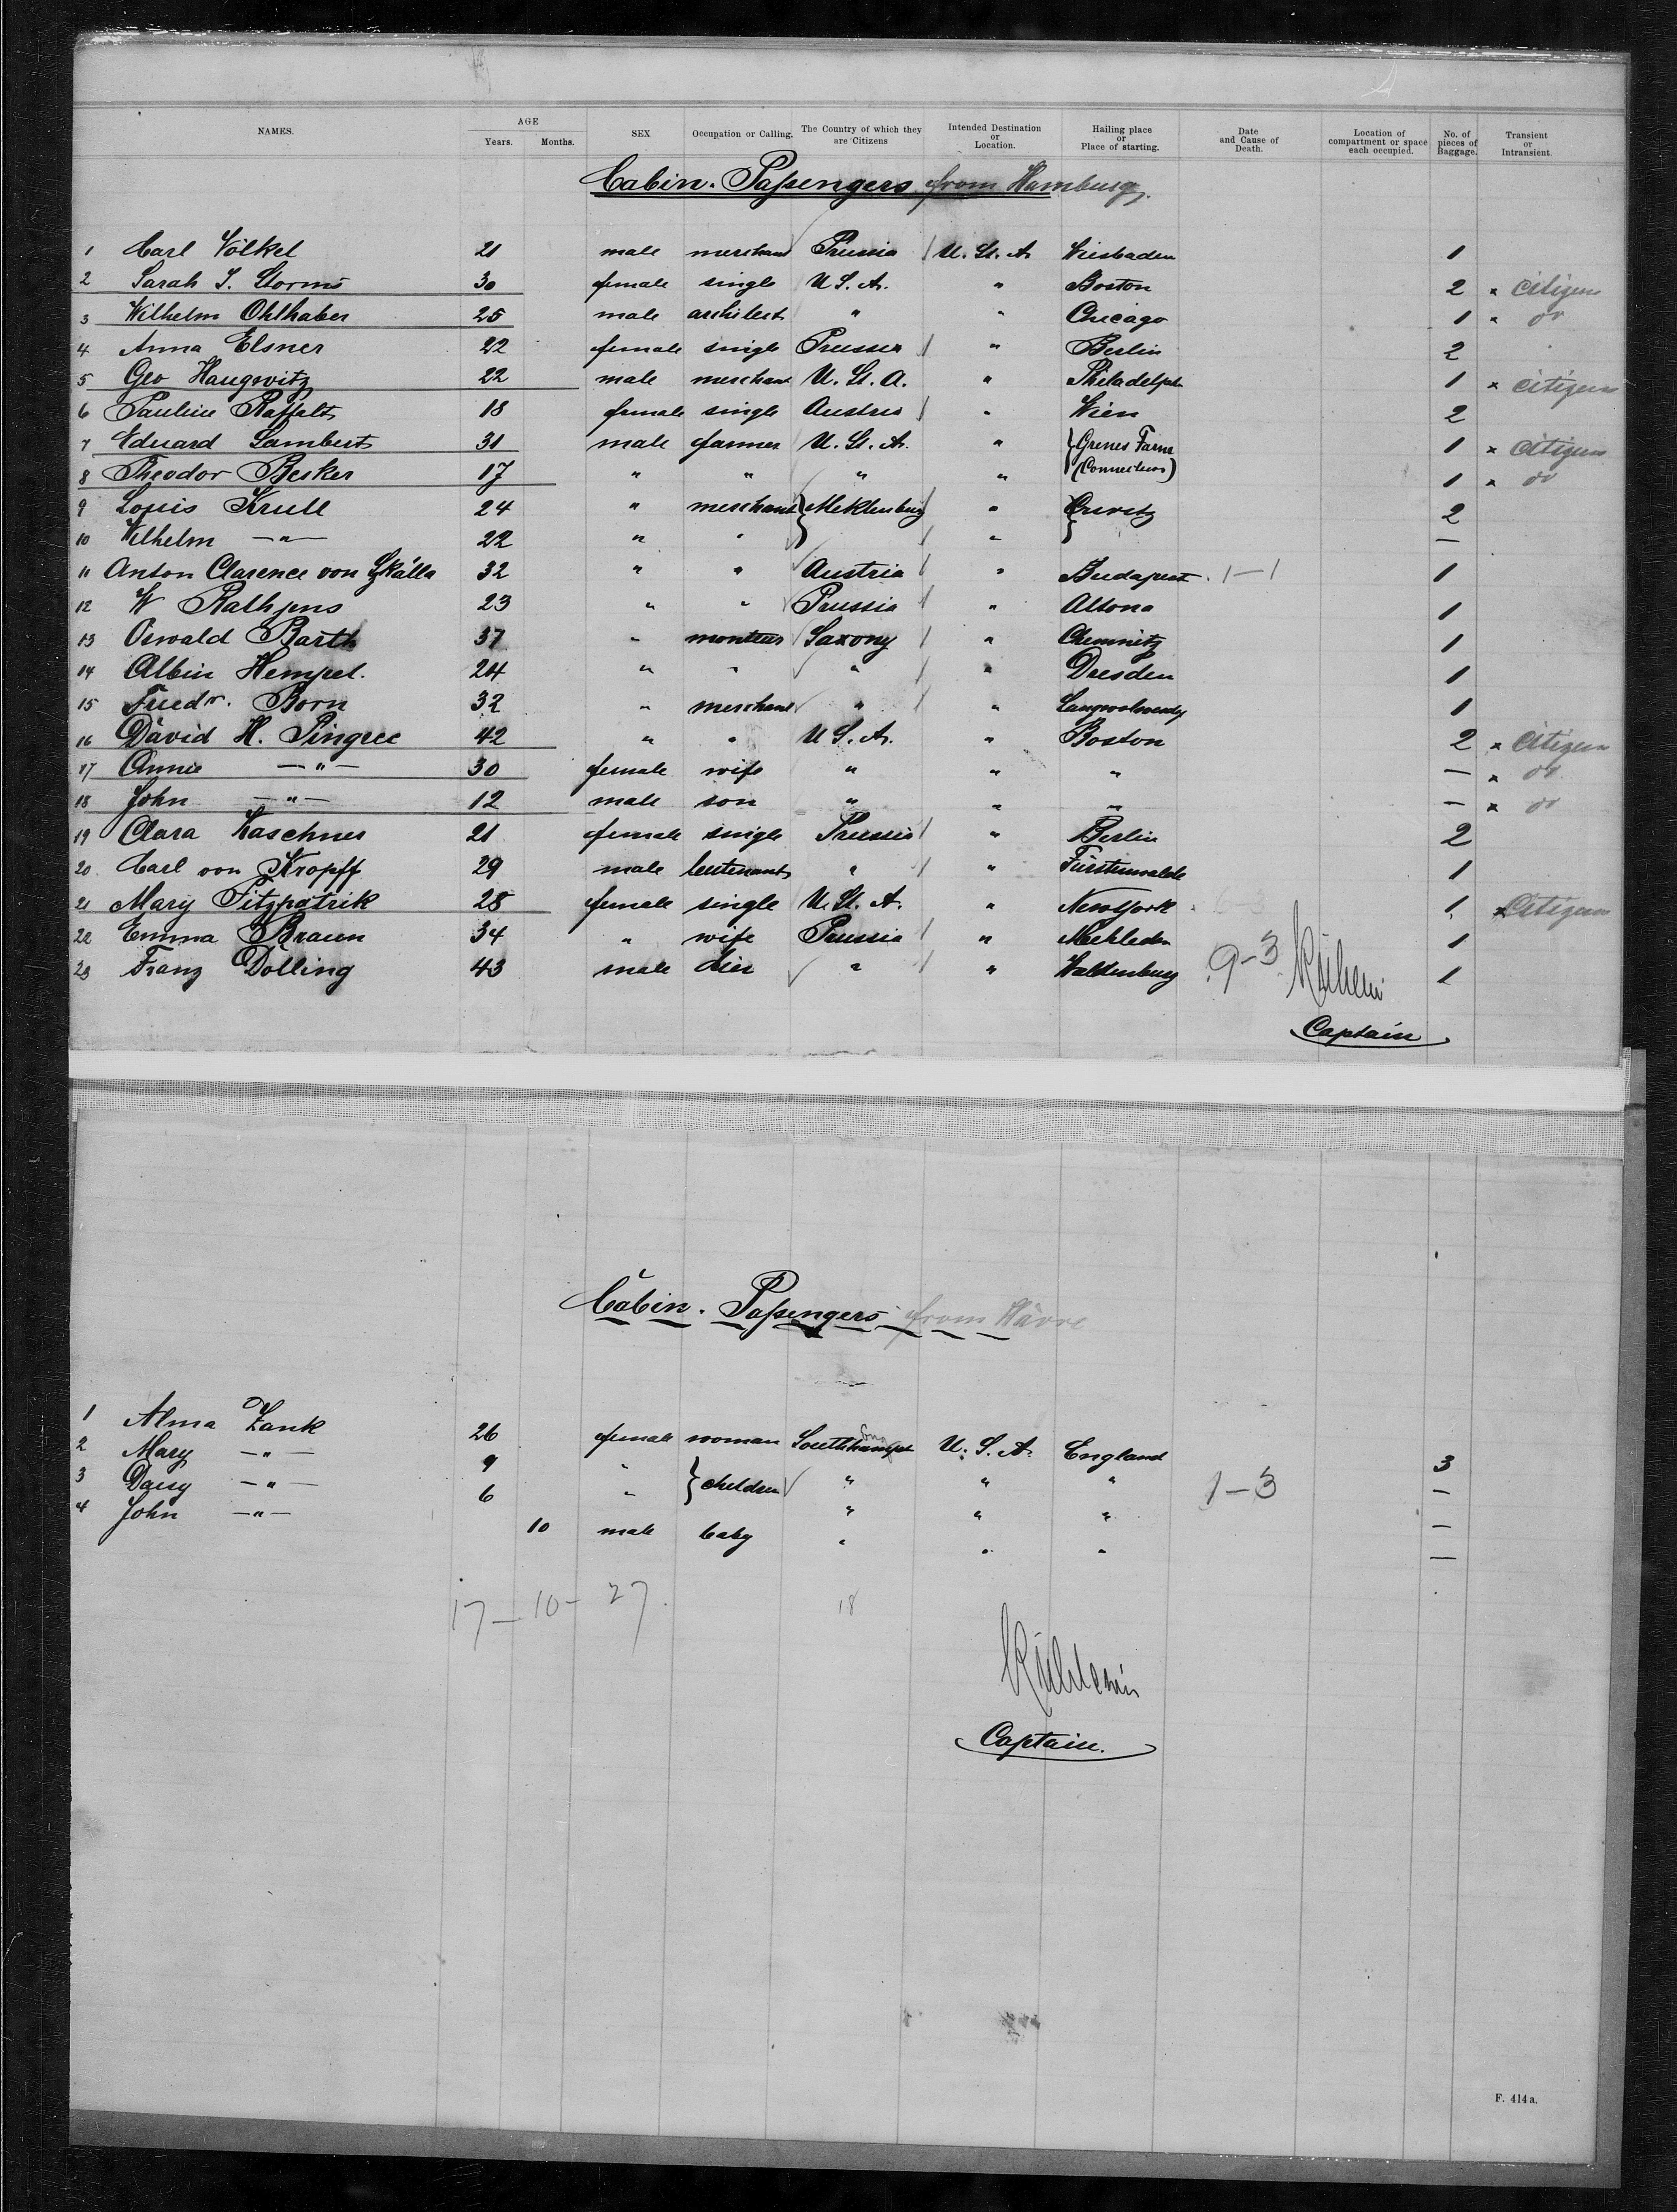 NAMES. AGE Years. Months. SEX Occupation or Calling. The Country of which they are Citizens Intended Destination or Location. Hailing place or Place of starting. Date and Cause of Death. Location of compartment or space each occupied. No. of pieces of Baggage. Transient or Intransient.
Cabin. Passengers from Hamburg.
1 Carl Völkel 21 male merchant Prussia U. St. A. Wiesbaden 1
2 Sarah S. Storms 30 female single U S. A. " Boston 2 x citizen
3 Wilhelm Ohlhaber 25 male architect " " Chicago 1 x do
4 Anna Elsner 22 female single Prussia " Berlin 2
5 Geo Haugwitz 22 male merchant U. St. A. " Philadelph 1 x citizen
6 Pauline Raffalt 18 female single Austria " Wien 2
7 Eduard Lambert 31 male farmer U. St. A. " Grenes Farm 1 x citizen
8 Theodor Besker 17 " " " " (Connecticus) 1 x do
9 Louis Krull 24 " merchant Meklenburg " Crivitz 2
10 Wilhelm — " — 22 " " " —
11 Anton Clarence von Skálla 32 " " Austria " Budapest 1—1 1
12 W Rathjens 23 " " Prussia " Altona 1
13 Oswald Barth 37 " monteur Saxony " Chemnitz 1
14 Albin Hempel. 24 " " " " Dresden 1
15 Friedr. Born 32 " merchant " " 1
16 David H. Pingree 42 " " U S. A. " Boston 2 x citizen
17 Annie — " — 30 female wife " " " — x do
18 John — " — 12 male son " " " — x do
19 Clara Kaschner 21 female single Prussia " Berlin 2
20 Carl von Kropff 29 male leutenant " " Fürstenwalde 1
21 Mary Fitzpatrik 28 female single U. St. A. " NewYork 1 x Citizen
22 Emma Braun 34 " wife Prussia " 1
23 Franz Dolling 43 male " " Waldenburg 9—3 1
Captain
Cabin. Passengers from Hàvre
1 Alma Zank 26 female woman Southhampt U. S. A. England 3
2 Mary — " — 9 " children " " " 1—3 —
3 Daisy — " — 6 " " " " —
4 John — " — 10 male baby " " " —
17—10—27. 18
Captain.
F. 414 a.